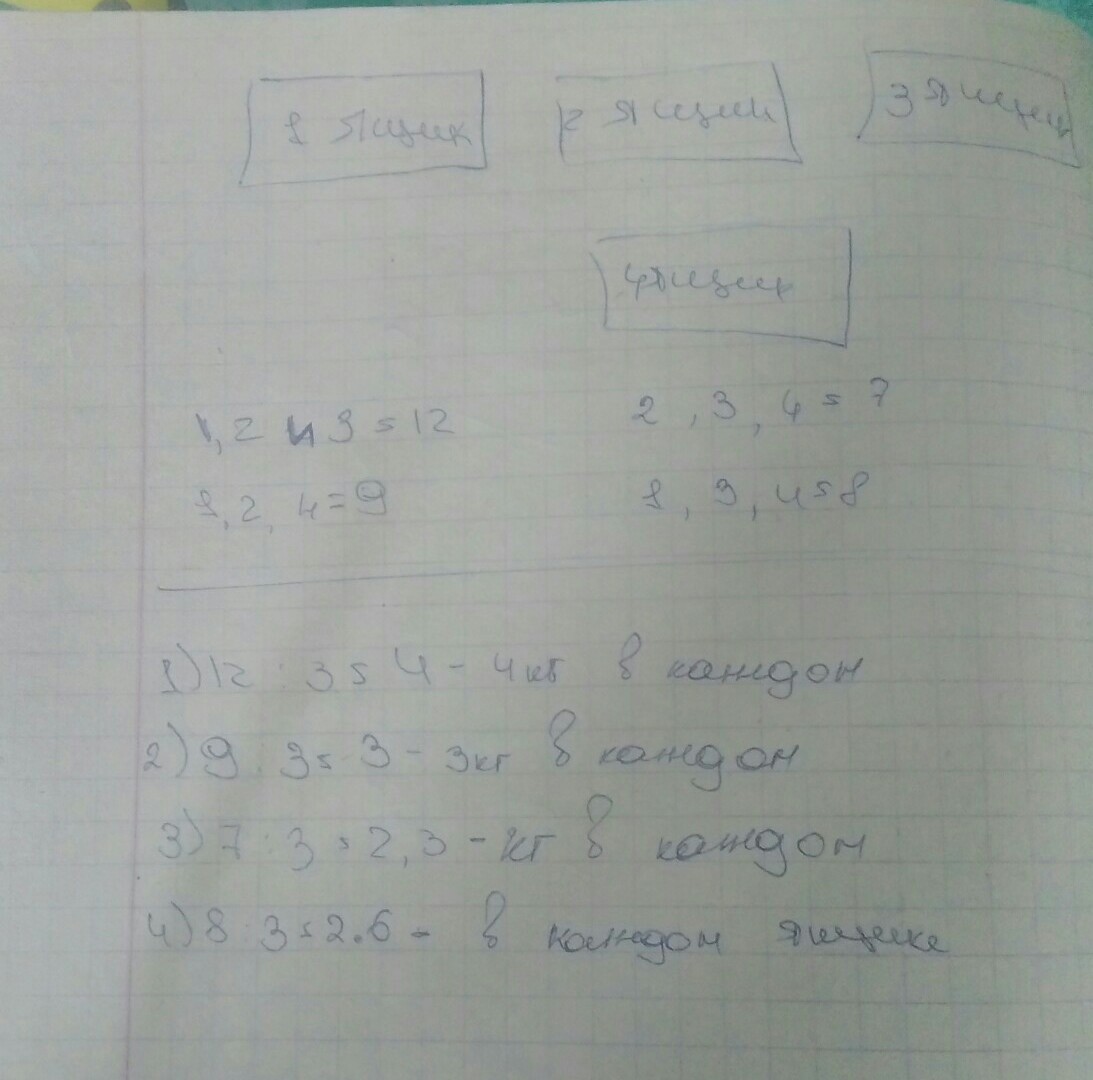 1 ящик 2 ящик 3 ящик
4 ящик
1, 2 и 3 = 12 2, 3, 4 = 7
1, 2, 4 = 9 1, 3, 4 = 8
1) 12 : 3 = 4 - 4 кг в каждом
2) 9 : 3 = 3 - 3 кг в каждом
3) 7 : 3 = 2,3 - кг в каждом
4) 8 : 3 = 2.6 - в каждом ящике